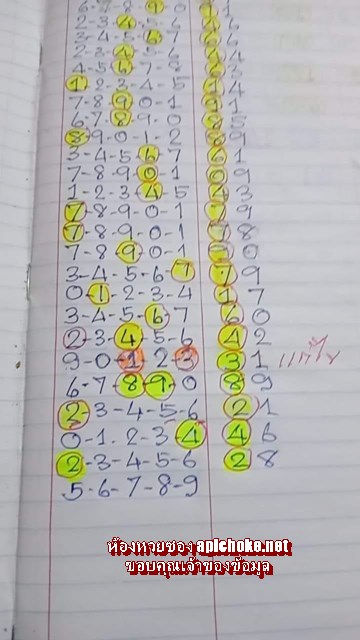 6-7-8-9-0 91
2-3-4-5-6 46
3-4-5-6-7 66
2-3-4-5-6 44
4-5-6-7-8 63
1-2-3-4-5 14
7-8-9-0-1 91
6-7-8-9-0 85
8-9-0-1-2 89
3-4-5-6-7 61
7-8-9-0-1 99
1-2-3-4-5 43
7-8-9-0-1 79
7-8-9-0-1 78
7-8-9-0-1 90
3-4-5-6-7 79
0-1-2-3-4 17
3-4-5-6-7 60
2-3-4-5-6 42
9-0-1-2-3 31 แก้ไข
6-7-8-9-0 89
2-3-4-5-6 21
0-1.2-3-4 46
2-3-4-5-6 28
5-6-7-8-9
ห้องหวยซอง apichoke.net
ขอบคุณเจ้าของข้อมูล